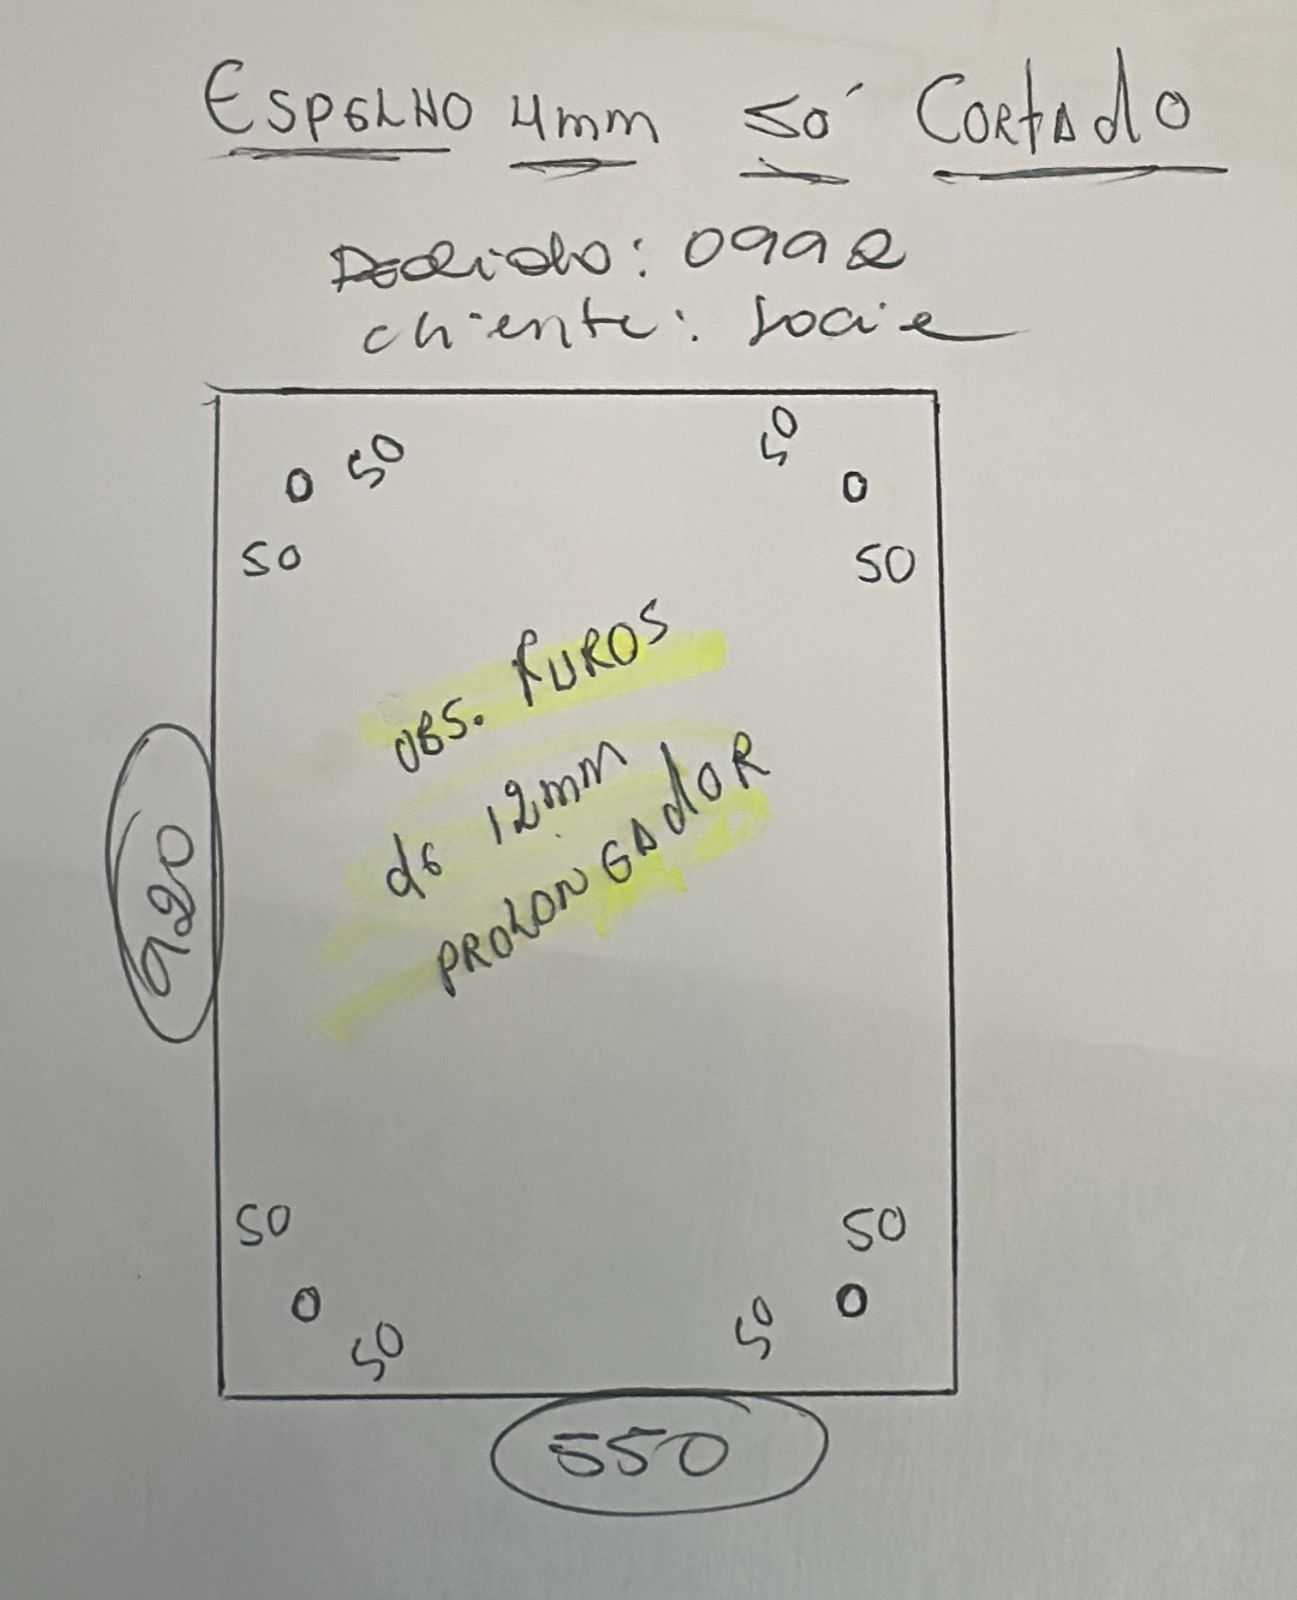 ESPELHO 4mm Só CORTAdO
Pedido: 0992
cliente:
50 50
50 50
OBS. FUROS
de 12mm
PROLONGAdOR
920
50 50
50 50
550